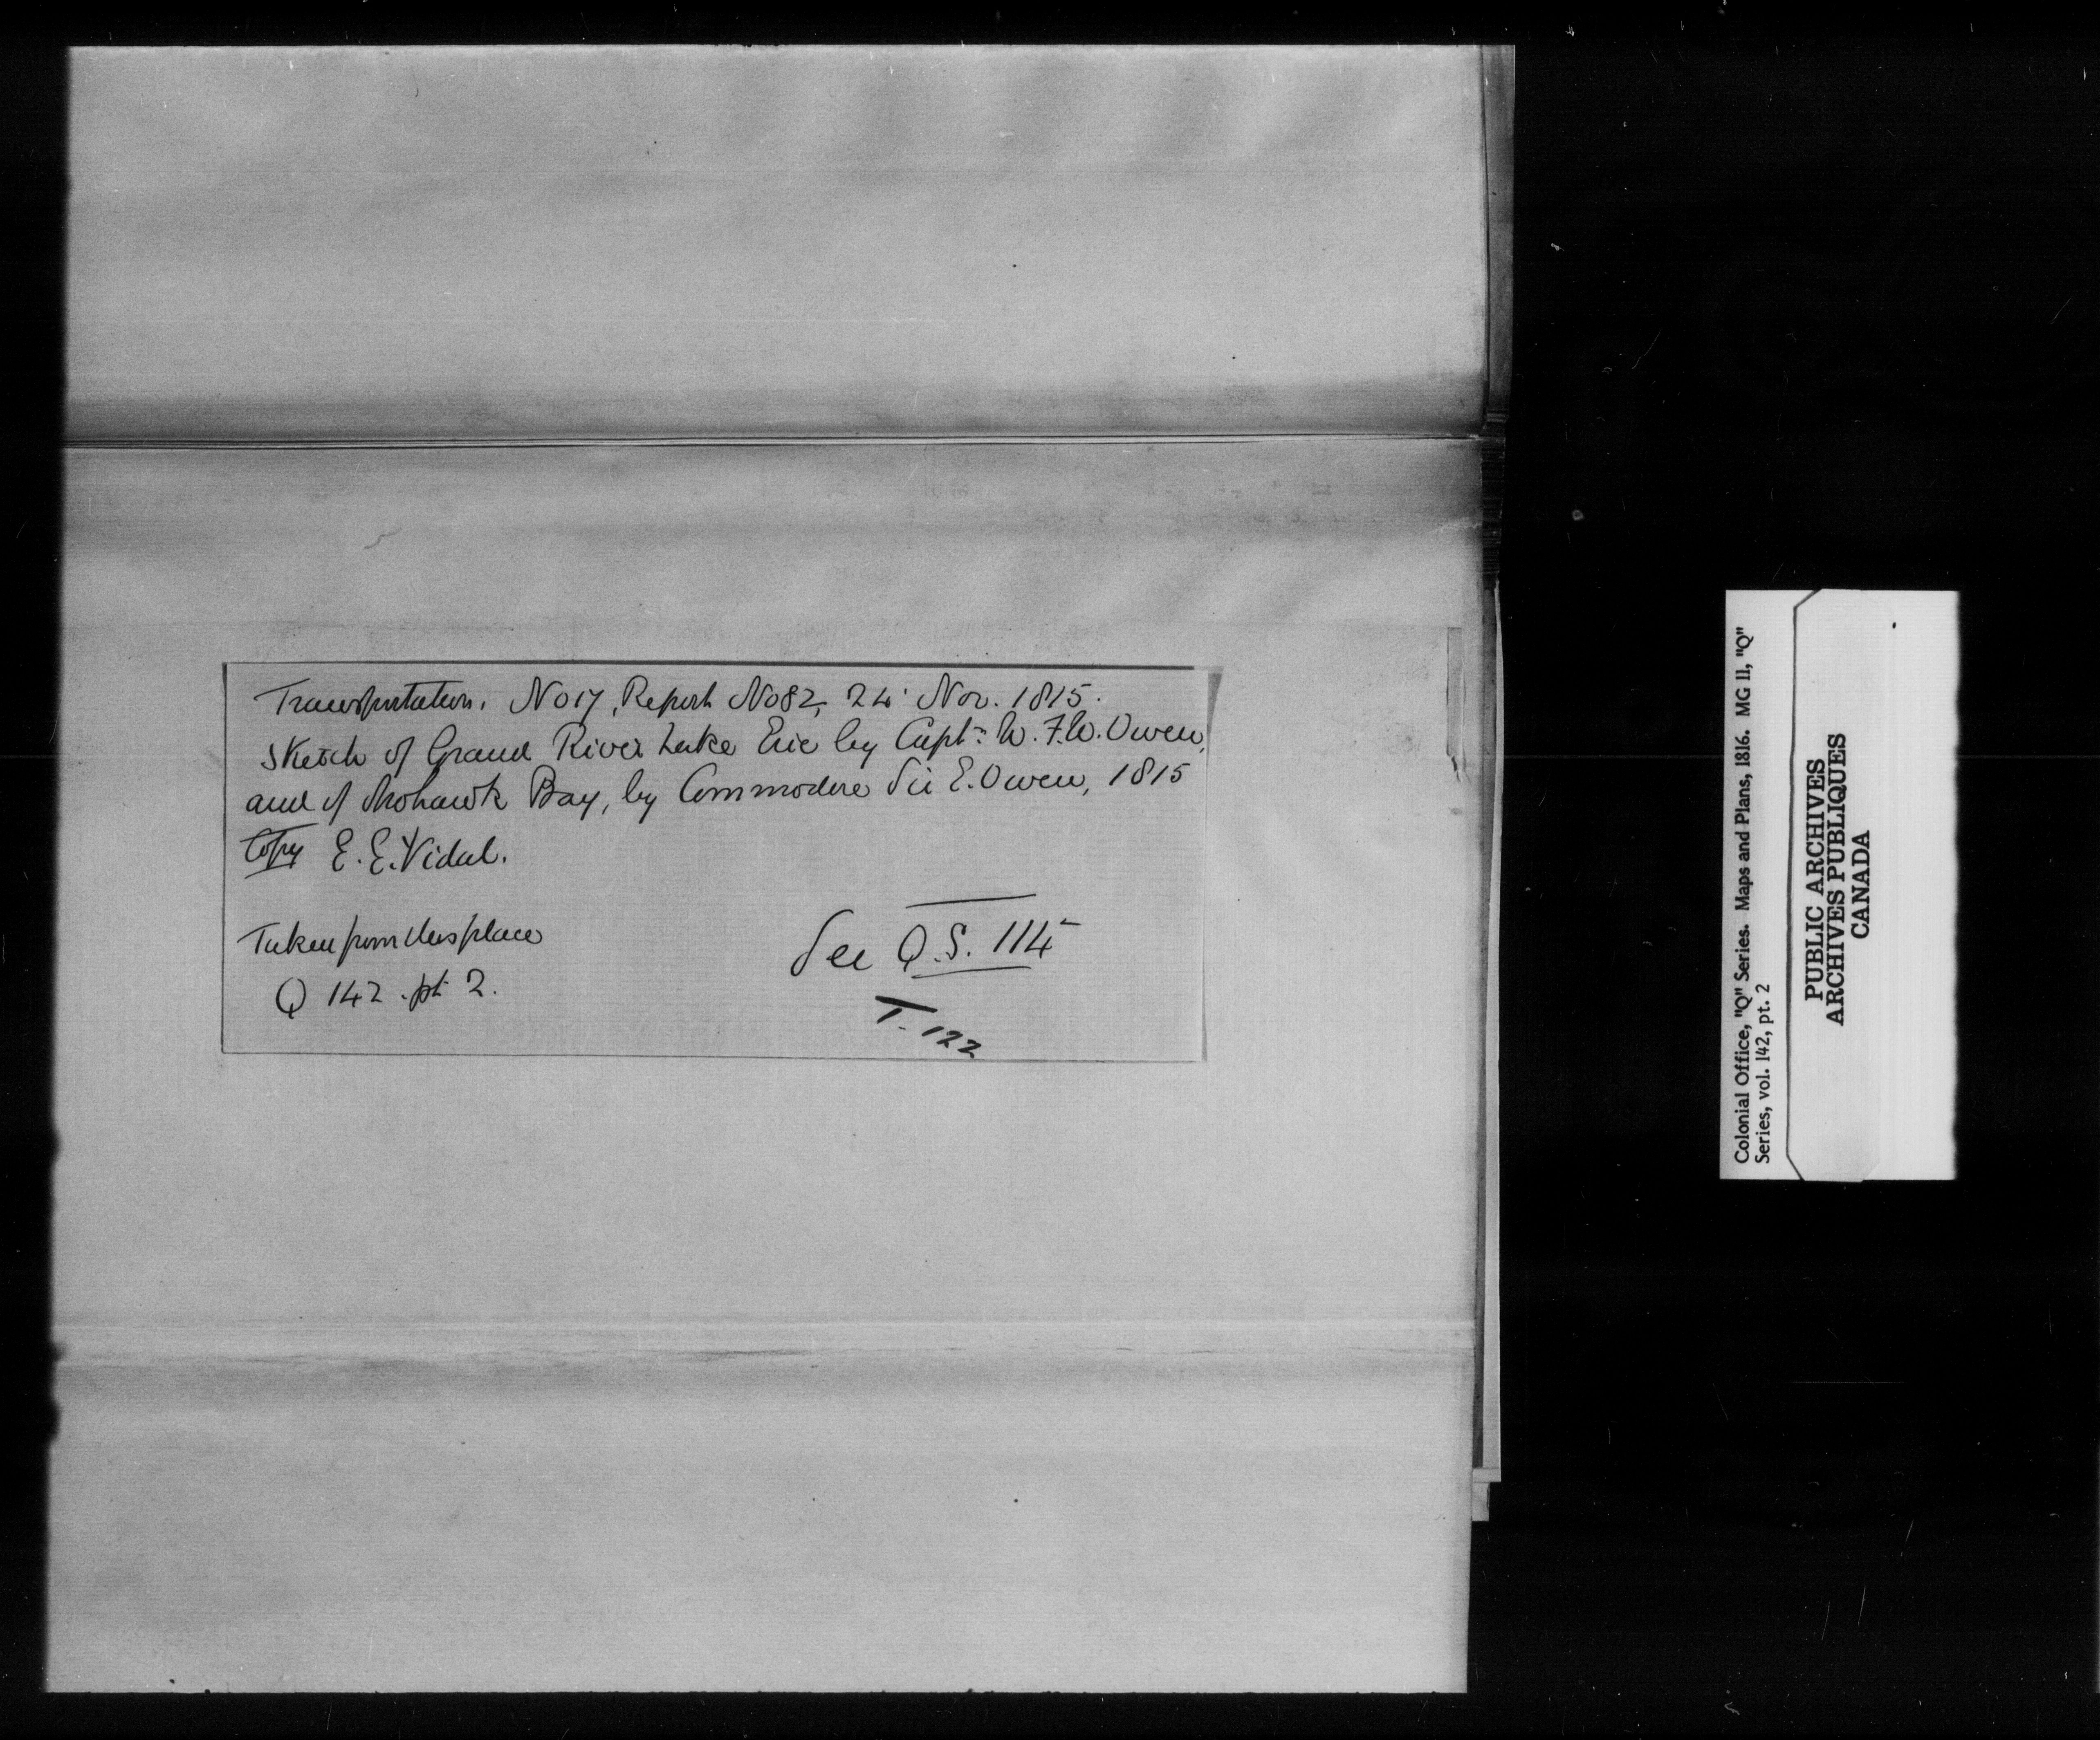 Transportation. No 17, Report No 82, 24 Nov. 1815.
Sketch of Grand River Lake Erie by Capt:n W. F. W. Owen,
and of Mohawk Bay, by Commodore Sir E. Owen, 1815
Copy E. E. Vidal.
Taken from this place
Q 142 . pt 2.
See Q.S. 114
T. 122
Colonial Office, "Q" Series. Maps and Plans, 1816. MG 11, "Q"
Series, vol. 142, pt. 2
PUBLIC ARCHIVES
ARCHIVES PUBLIQUES
CANADA